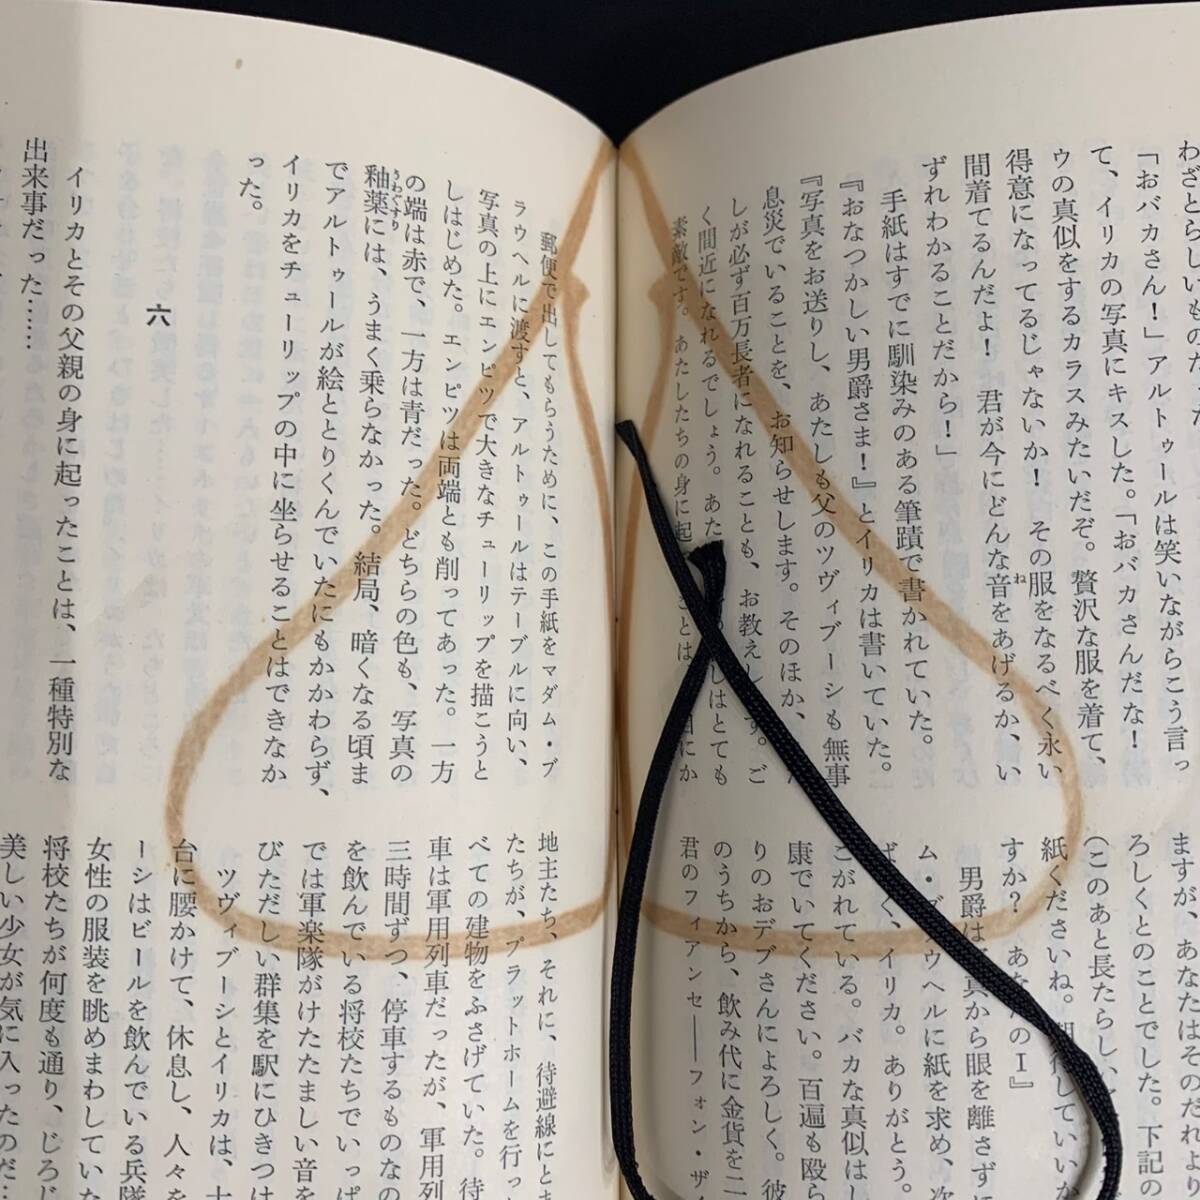 わざとらしいものだ
「おバカさん！」アルトゥールは笑いながらこう言っ
て、イリカの写真にキスした。「おバカさんだな！
ウの真似をするカラスみたいだぞ。贅沢な服を着て、
得意になってるじゃないか！　その服をなるべく永い
間着てるんだよ！君が今にどんな音をあげるか、い
ね
ずれわかることだから！」
手紙はすでに馴染みのある筆蹟で書かれていた。
『おなつかしい男爵さま！』とイリカは書いていた。
『写真をお送りし、あたしも父のツヴィブーシも無事
息災でいることを、お知らせします。そのほか、
しが必ず百万長者になれることも、お教えします。ご
く間近になれるでしょう。あた しはとても
素敵です。あたしたちの身に起 ことは にか
郵便で出してもらうために、この手紙をマダム・ブ
ラウヘルに渡すと、アルトゥールはテーブルに向い、
写真の上にエンピツで大きなチューリップを描こうと
しはじめた。エンピツは両端とも削ってあった。一方
の端は赤で、一方は青だった。どちらの色も、写真の
うわぐすり
釉薬には、うまく乗らなかった。結局、暗くなる頃ま
でアルトゥールが絵ととりくんでいたにもかかわらず、
イリカをチューリップの中に坐らせることはできなか
った。
六
イリカとその父親の身に起ったことは、一種特別な
出来事だった……
ますが、あなたはそのだれより
ろしくとのことでした。下記の
（このあと長たらしい
紙くださいね。 していいか
すか？　あなたのＩ』
男爵は 真から眼を離さず
ム・ブラウヘルに紙を求め、次
ばく、イリカ。ありがとう。
こがれている。バカな真似は
康でいてください。百遍も殴ら
りのおデブさんによろしく。彼
のうちから、飲み代に金貨を二
君のフィアンセ――フォン・ザイ
地主たち、それに、待避線にとま
たちが、プラットホームを行っ
べての建物をふさげていた。待
車は軍用列車だったが、軍用列
三時間ずつ、停車するものなの
を飲んでいる将校たちでいっぱ
では軍楽隊がけたたましい音を
びただしい群集を駅にひきつけ
ツヴィブーシとイリカは、
台に腰かけて、休息し、人々を
ーシはビールを飲んでいる兵隊
女性の服装を眺めまわしていた
将校たちが何度も通り、じろじ
美しい少女が気に入ったのだ…